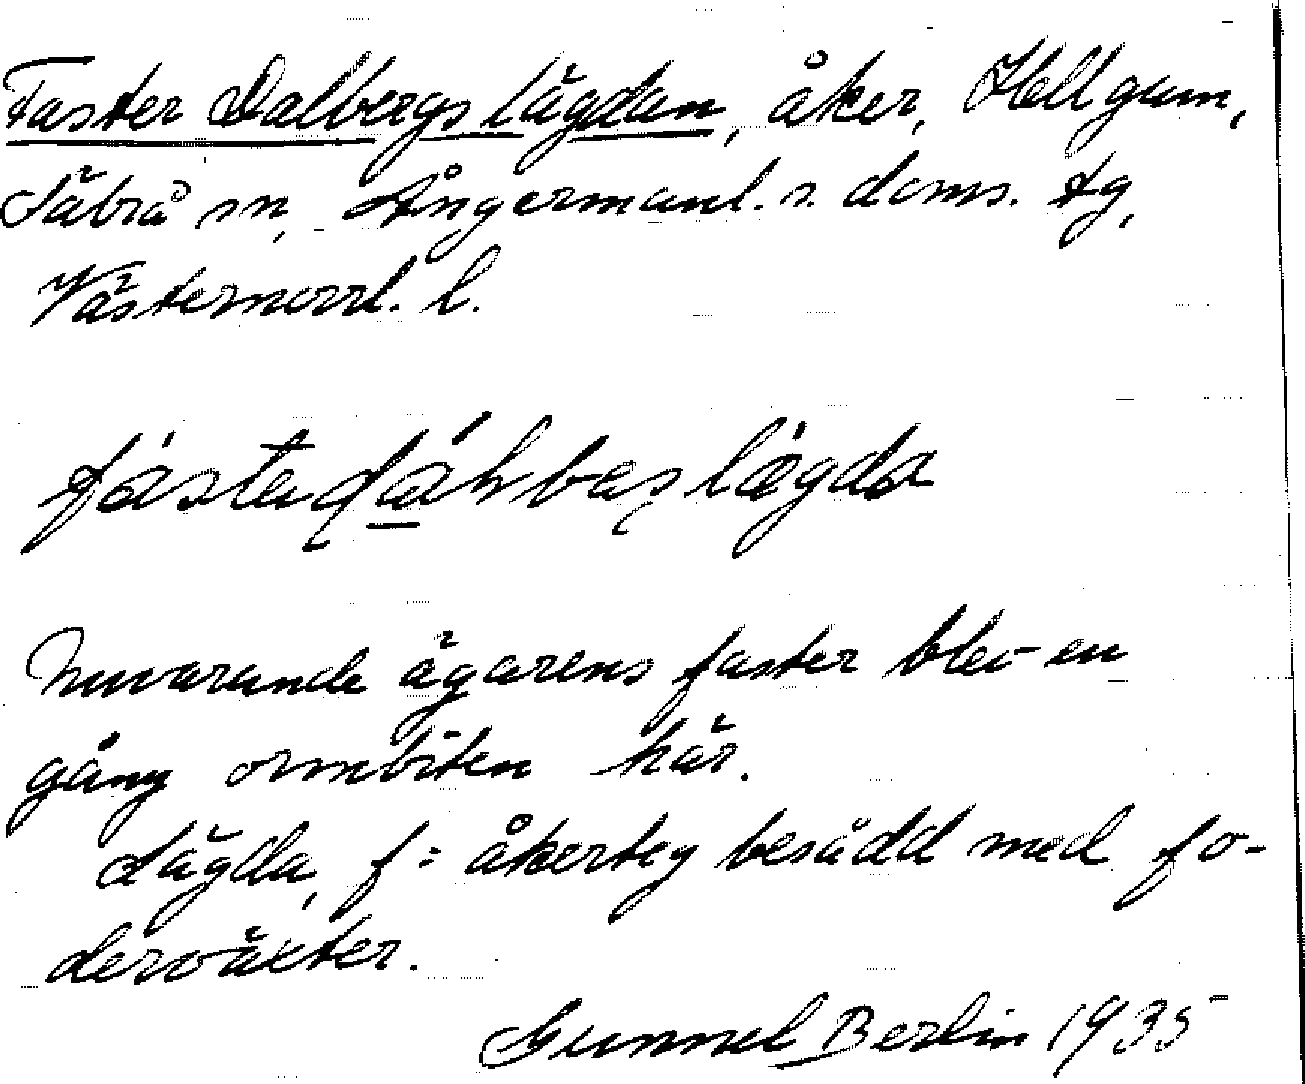 Faster Dalbergslägdan, åker, Hellgum,
Säbrå sn, Ångermanl. s. doms. tg,
Västernorrl. l.
Nuvarande ägarens faster blev en
gång ormbiten här.
Lägda, f = åkerteg besådd med fo-
derväxter.
Gunnel Berlin 1935